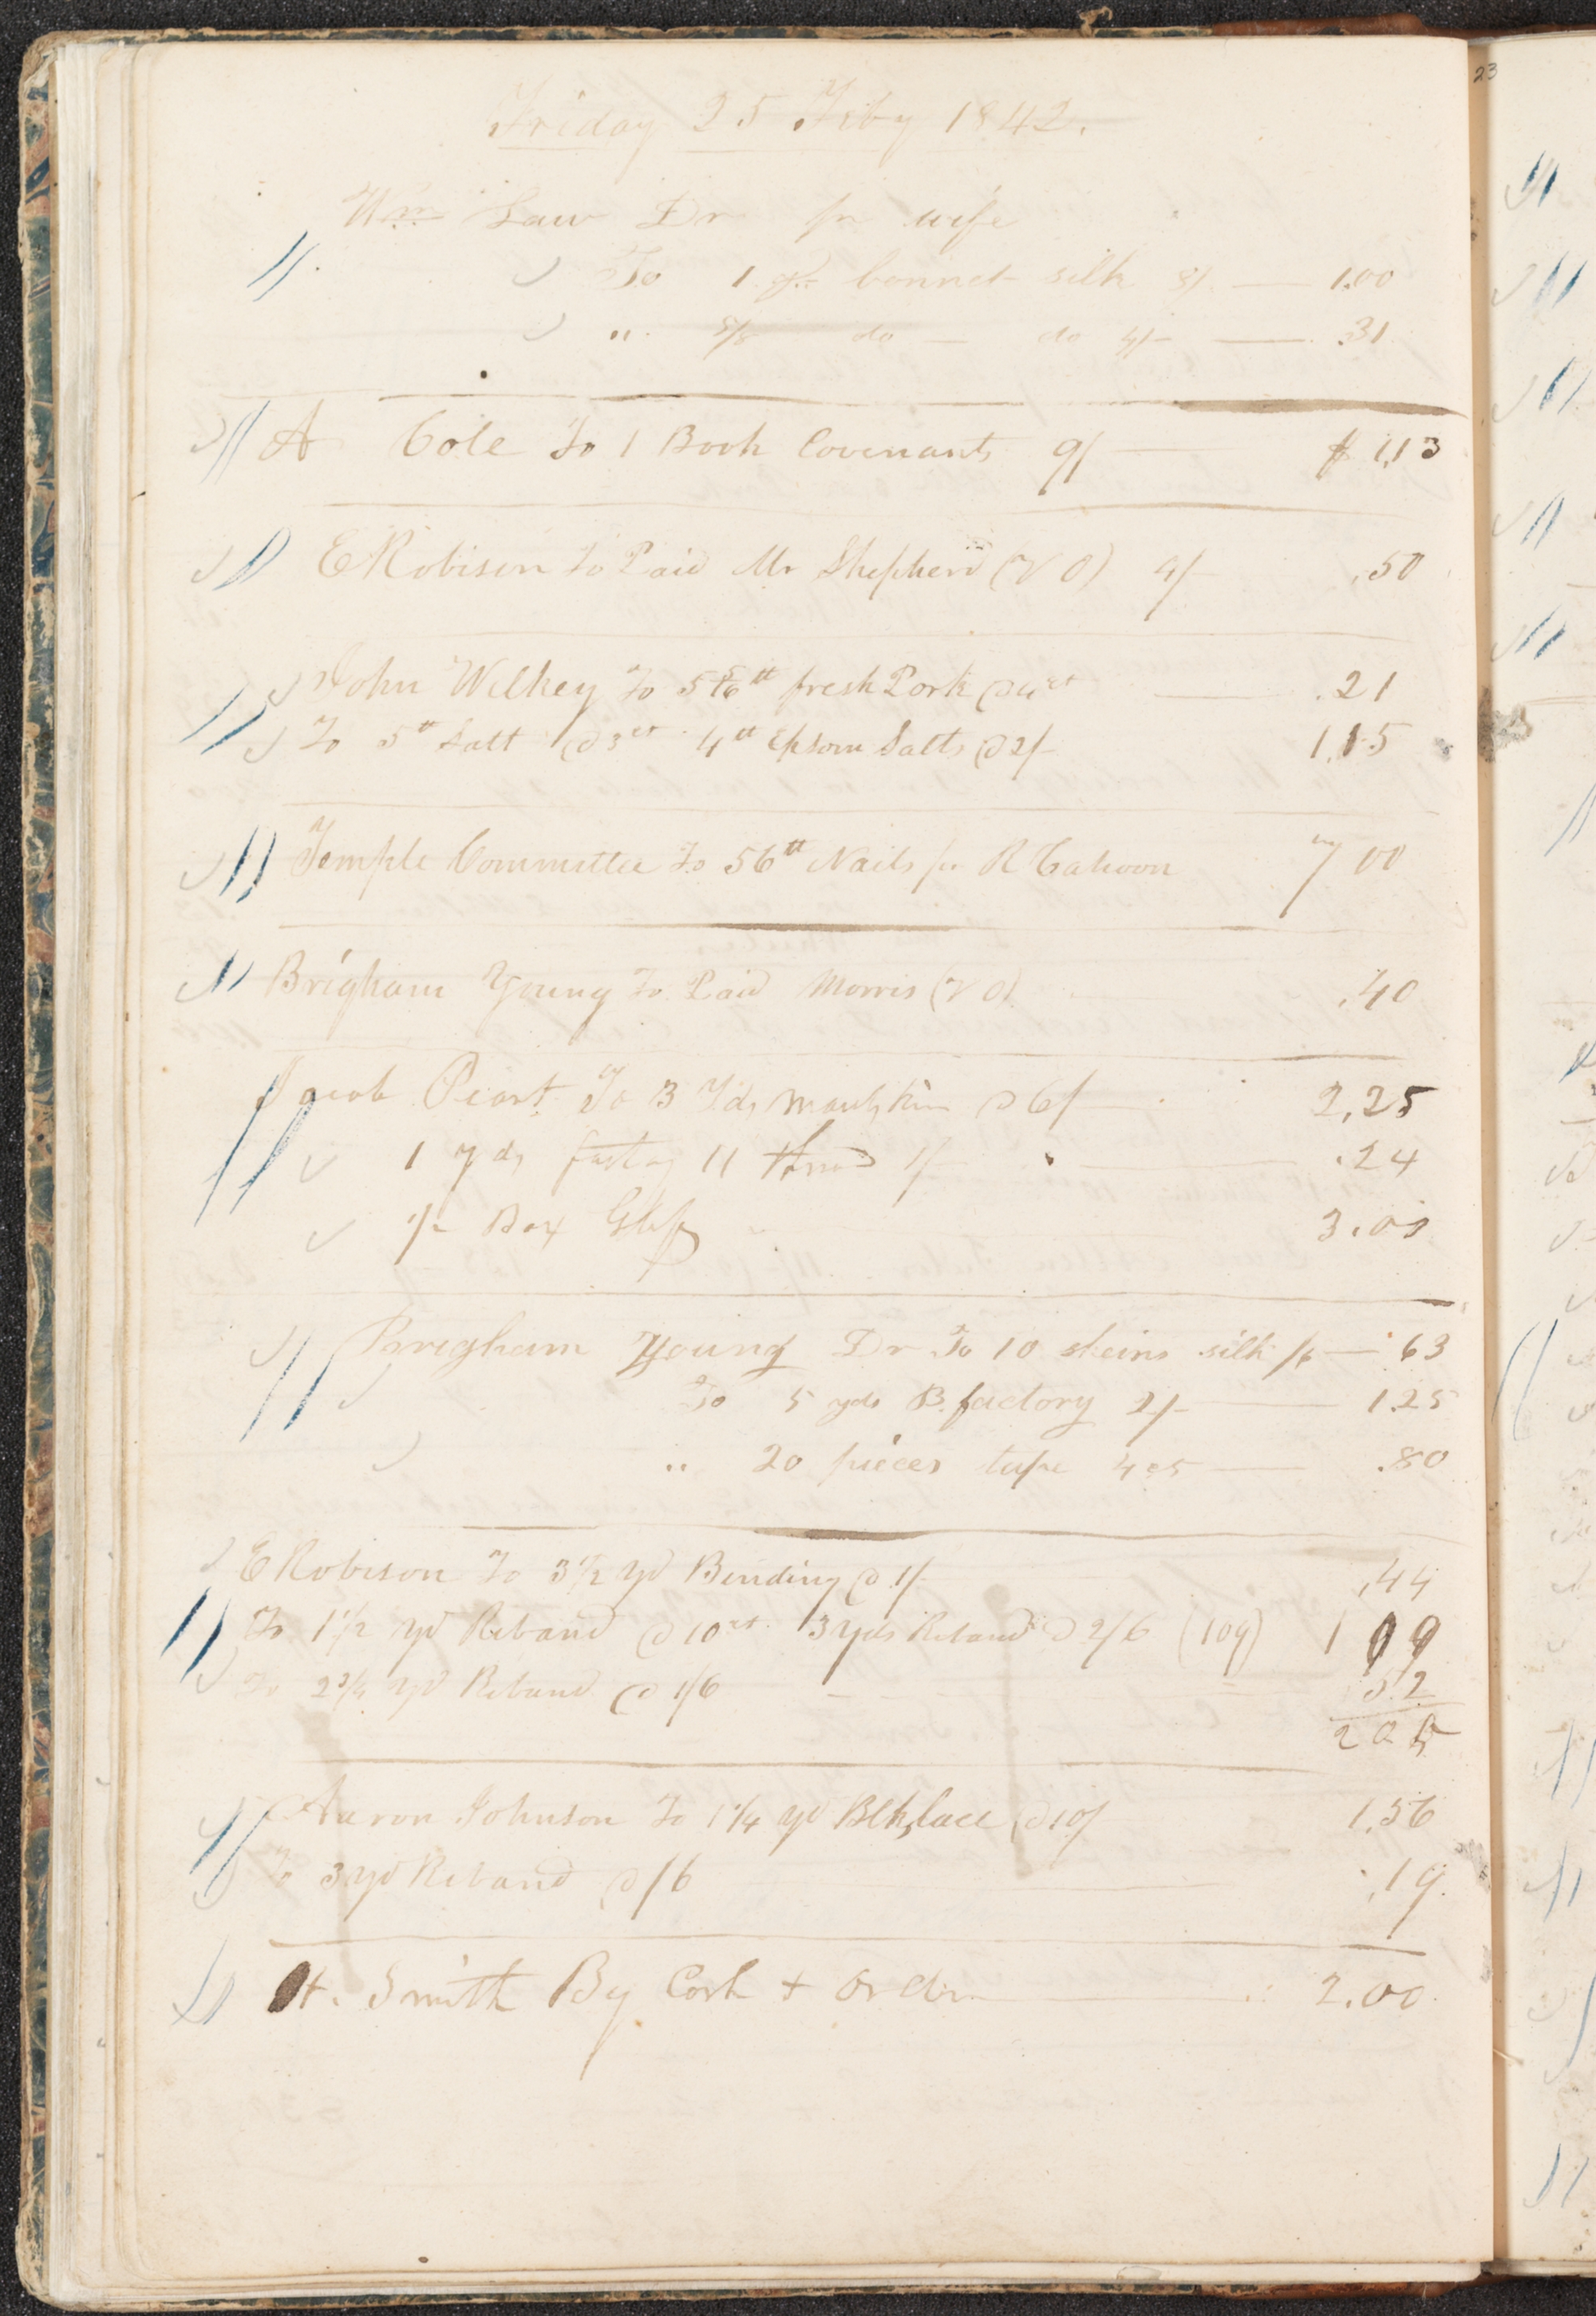 23
Friday 25 Feby 1842.
Wm Law Dr pr wife
To 1 yd. bonnet silk 8/ — 1.00
" 5/8 do — do 4/- — .31
A Cole To 1 Book Covenants 9/ — $1,13
E Robison To Paid Mr Shepherd (V O) 4/- .50
John Wilkey To fresh Pork @ 4ct — .21
To 5tt Salt @ 3ct 4tt Epsom Salts @ 2/- 1,15
Temple Committee To 56tt Nails pr R Cahoon 7 00
Brigham Young To Paid Morris (V O) .40
Jacob Peart To 3 Yds @ 6/ — 2,25
1 yds 11 1/- — .24
1/2 Box Glass 3.00
Brigham Young Dr To 10 skeins silk /6 — .63
To 5 yds B. factory 2/- — 1.25
" 20 pieces tape 4cts — .80
E Robison To 3 1/2 yd Binding @ 1/- ,44
To 1 1/2 yd Riband @ 10ct 3 yds Riband @ 2/6 (109) 1 09
To 2 3/4 yd Riband @ 1/6 - - - 52
2 05
Aaron Johnson To 1 1/4 yd Blk lace @ 10/ 1,56
To 3 yd Riband @ /6 — .19
H. Smith By Cash + Order — 2.00